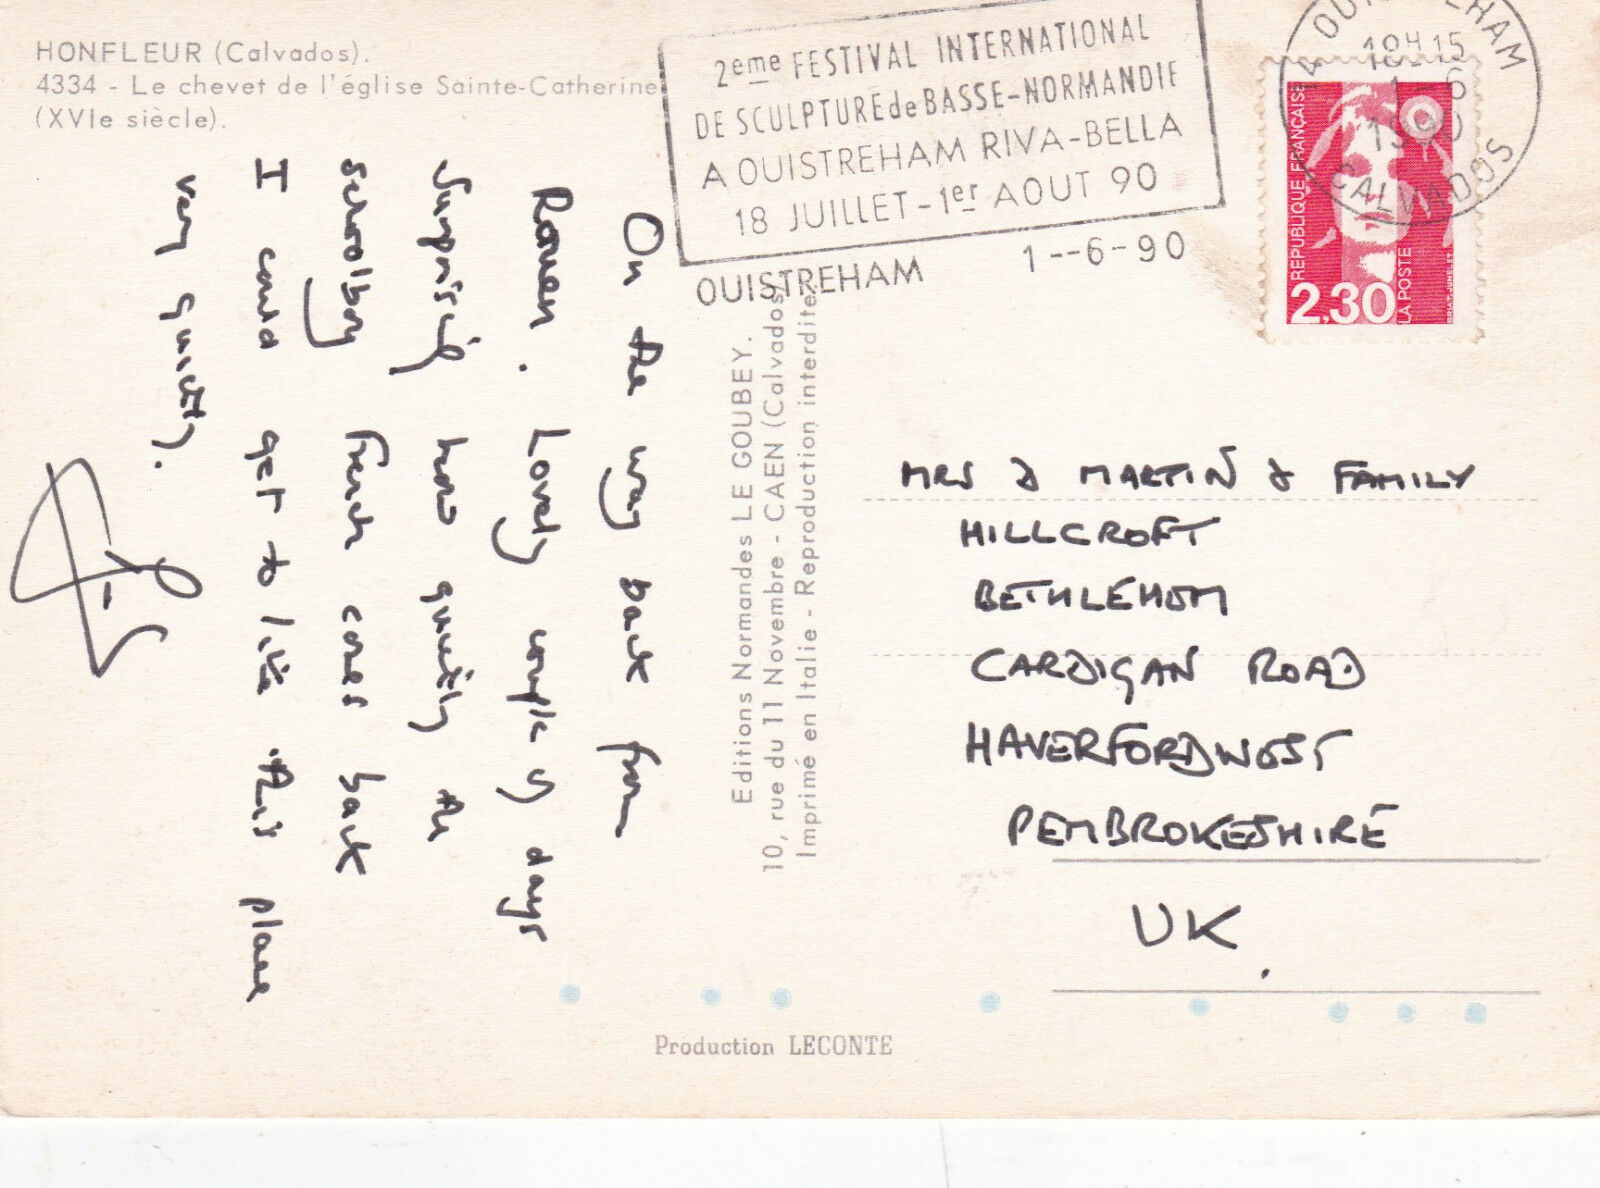 HONFLEUR (Calvados).
4334 - Le chevet de l'église Sainte-Catherine
(XVIe siècle).
2eme FESTIVAL INTERNATIONAL
DE SCULPTURE de BASSE-NORMANDIE
A OUISTREHAM RIVA-BELLA
18 JUILLET - 1er AOUT 90
OUISTREHAM 1--6-90
18H15
1-6
1990
CALVADOS
REPUBLIQUE FRANÇAISE
2,30
LA POSTE
On the way back from
Rouen. Lovely couple of days
Surprising how quickly the
schoolboy French comes back
I could get to like this place
very quickly.
Editions Normandes LE GOUBEY.
10, rue du 11 Novembre - CAEN (Calvados)
Imprimé en Italie - Reproduction interdite.
MRS D MARTIN & FAMILY
HILLCROFT
BETHLEHEM
CARDIGAN ROAD
HAVERFORDWEST
PEMBROKESHIRE
UK.
Production LECONTE